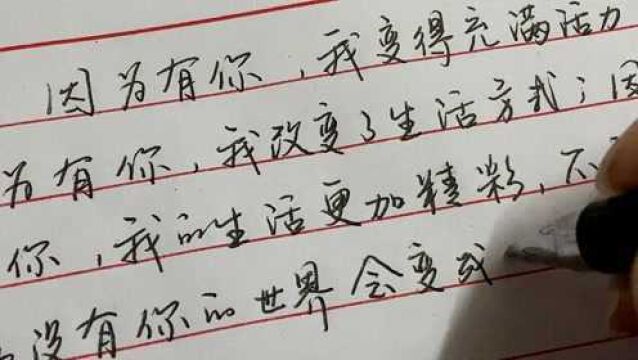 因为有你，我变得充满活力
为有你，我改变了生活方式；因
你，我的生活更加精彩，不
没有你的世界会变成